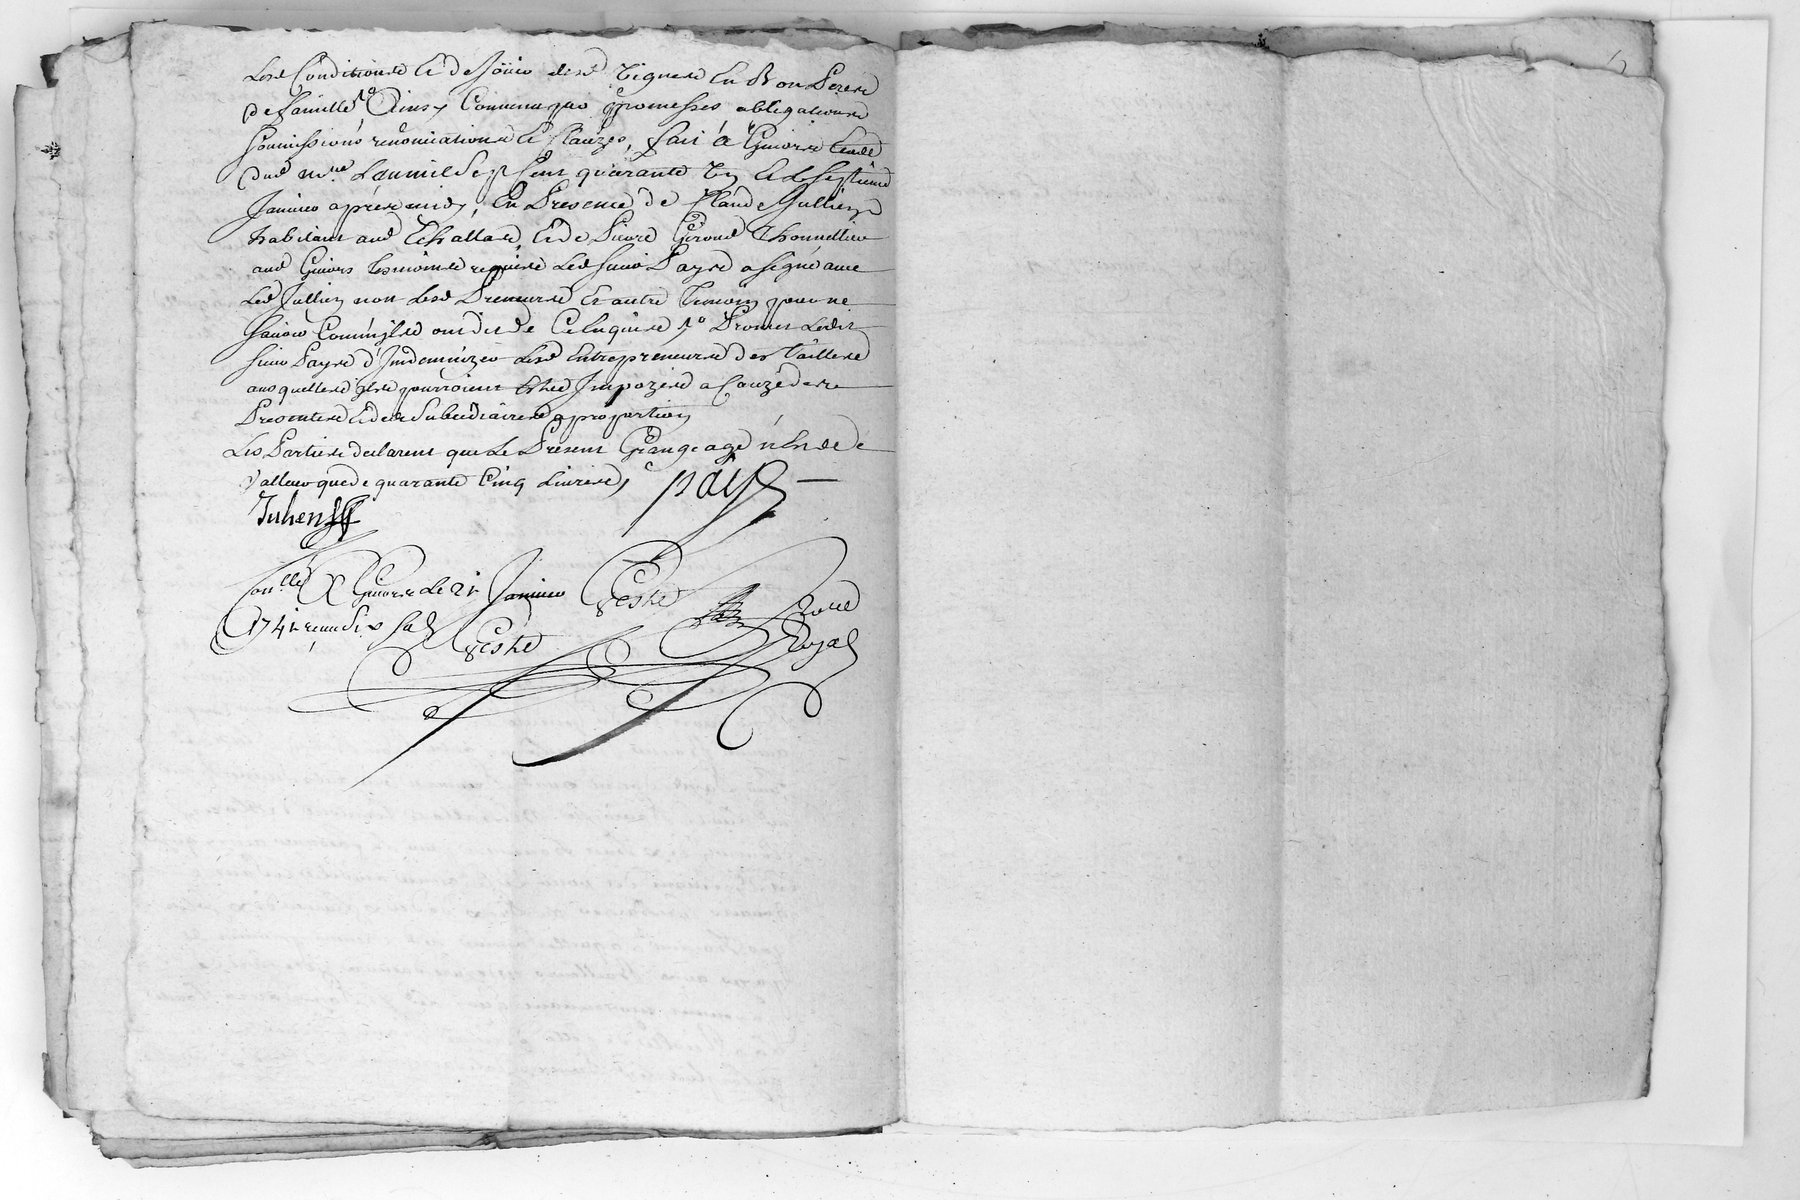 Lesd Conditions et de Jouir desd vignes en Bon Peres
de famille &ca Ainsy Convenu par promesses obligations
soumissions renonciations et clauzes, fait à Givors
L'an mil sept cent quarante un et le septieme
Janvier après midy, en Presence de Claude Jullien
habitant aud Echallas, et de Pierre Giroud Thonnellier
aud Givors temoins requis led sieur Payre a signé avec
led Jullien non lesd Preneurs et autre temoin pour ne
sçavoir comm'ils ont dit de ce enquis &ca Promet ledit
sieur Payre d'Indemnizer lesd Entrepreneurs des Tailles
auxquelles ils pourroient estre Impozés a Cauze des
Presentes et des Subsidiaires a proportion
Les Parties declarent que le Present Grangeage n'est de
valleur que de quarante Cinq Livres
payre
Julien
Conllé A Givors le 21 Janvier
1741 receu six sols
Royal